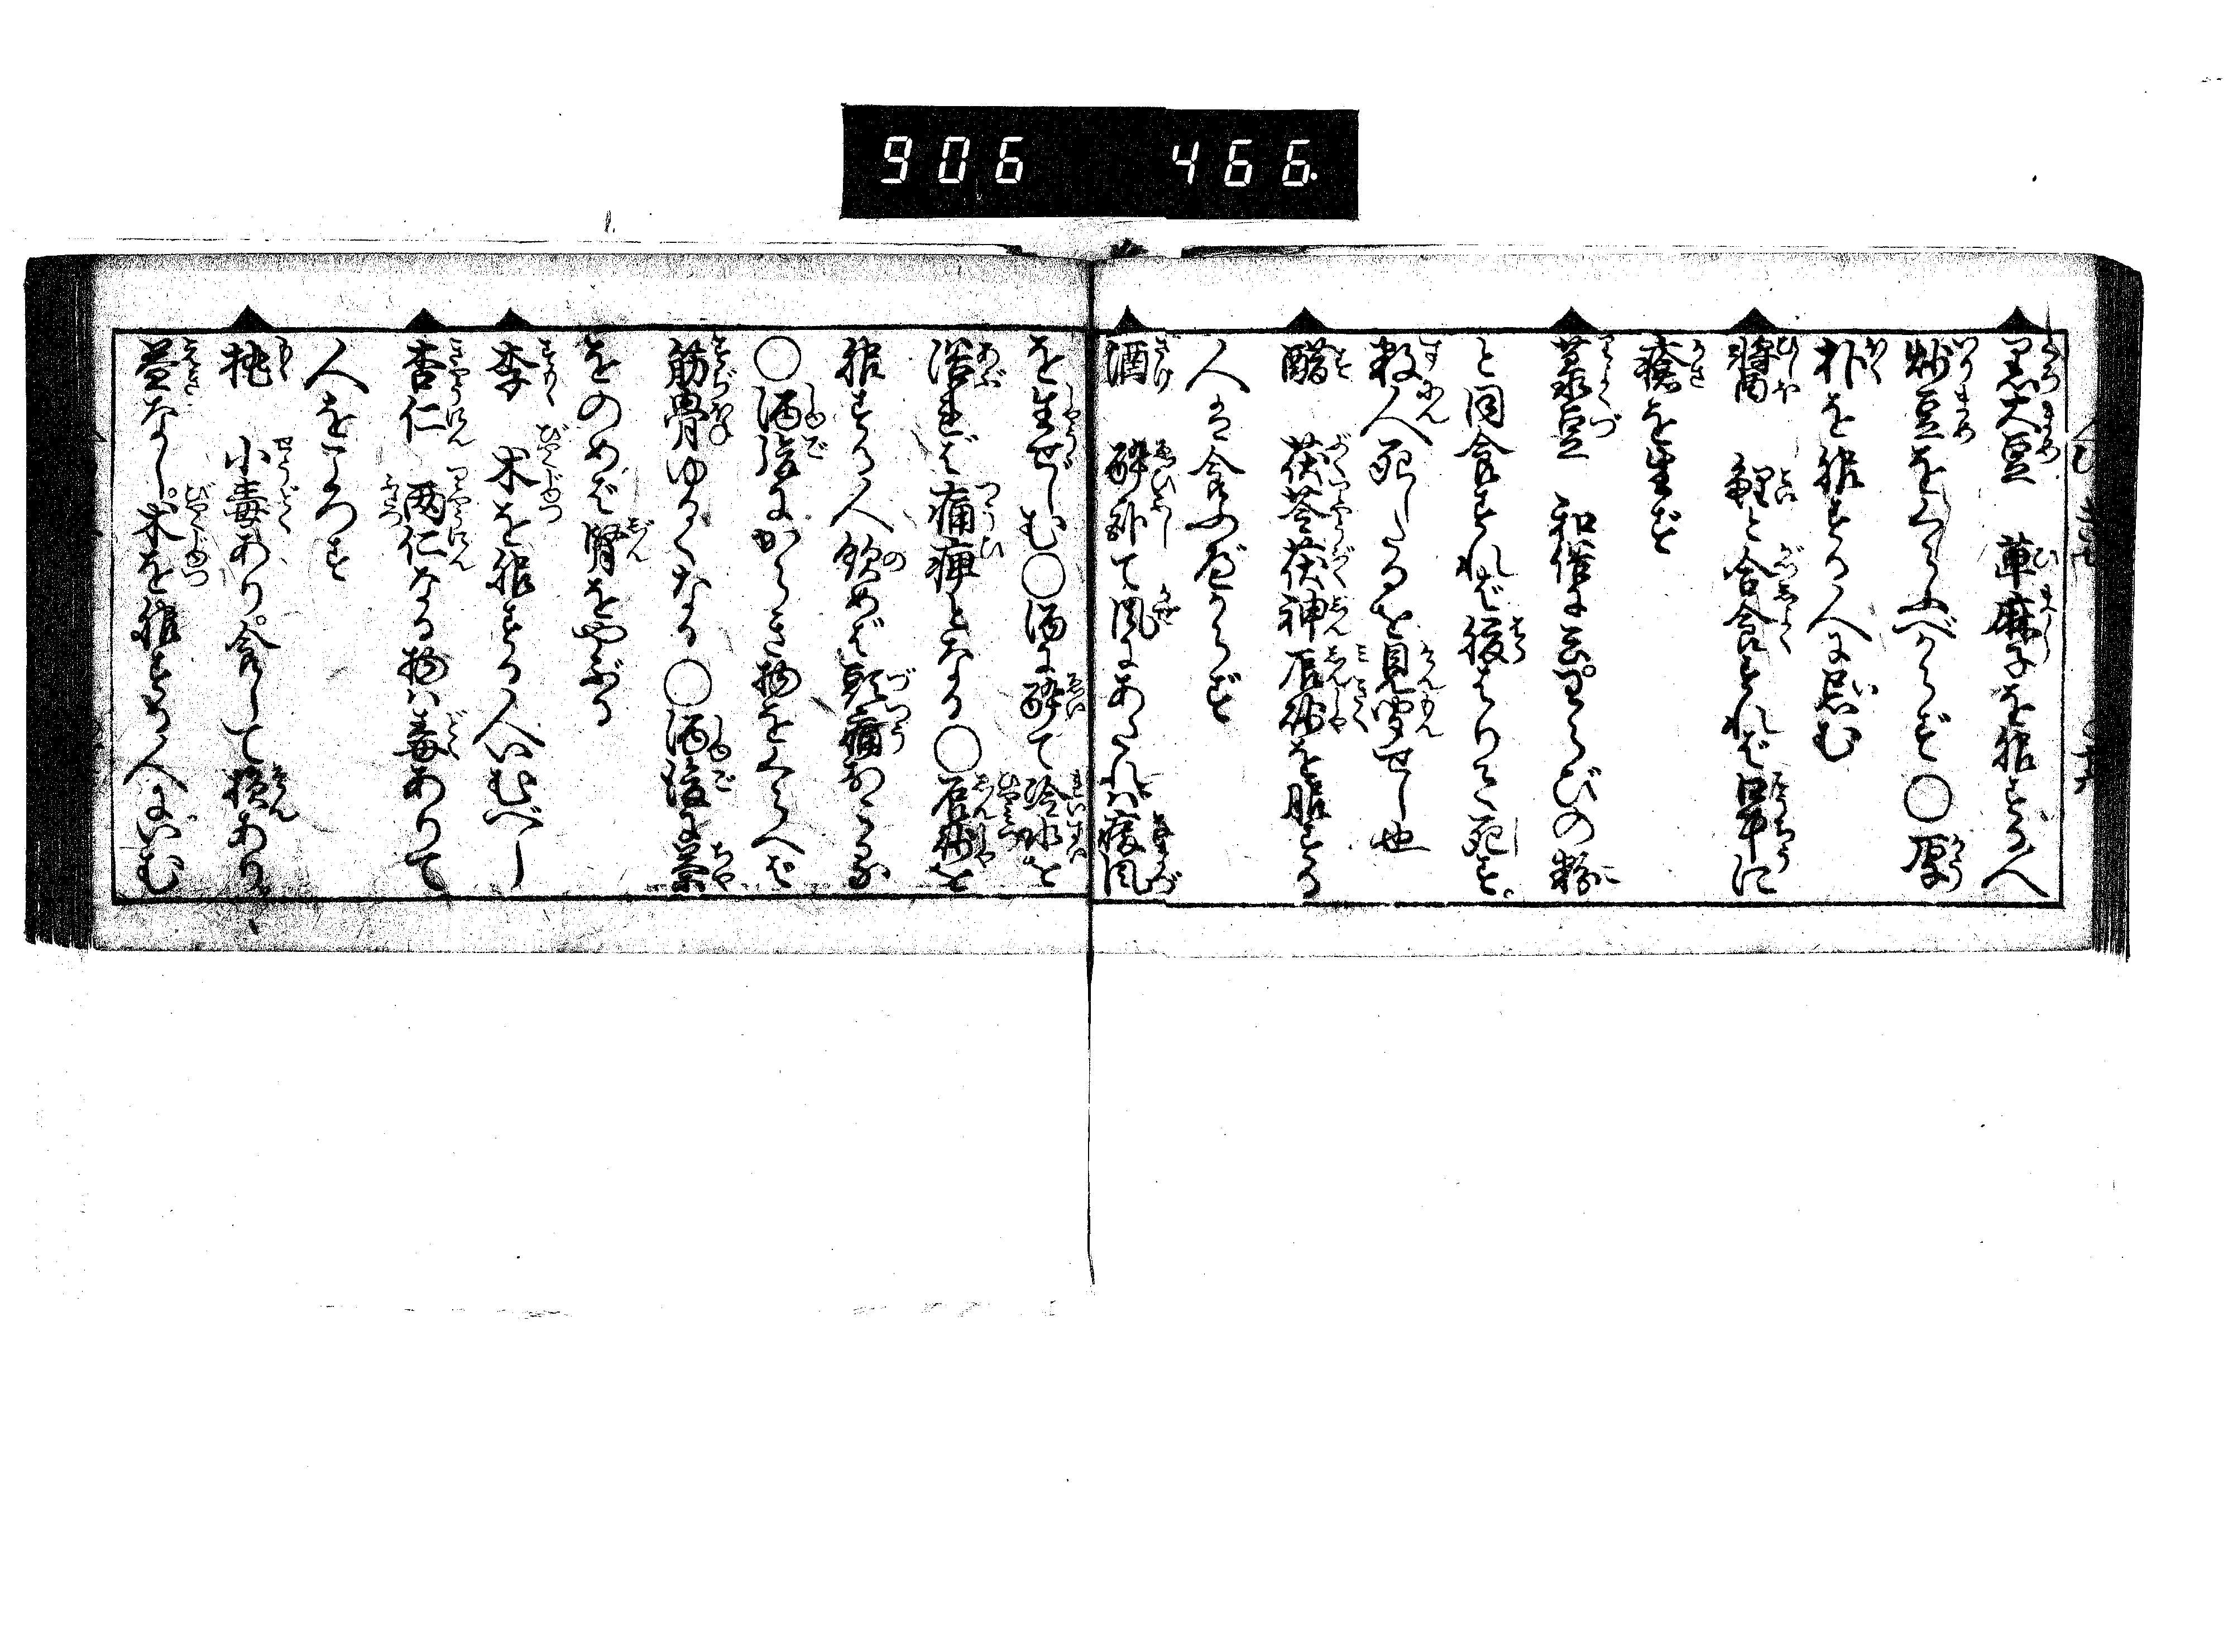 906 466.
黒大豆 萆麻子を服する人
炒豆をくらふべからず〇厚
朴を服する人に忌む
醤 鯉と合食すれば口中に
瘡を生ず
菉豆 和俗に云わらびの粉
と同食すれば腹はりて死す
数人死したるを見聞せし也
醋 茯苓茯神辰砂を服する
人は食ふべからず
酒 酔卧て風にあたれば癜風
を生ぜしむ〇酒に酔て冷水を
浴れば痛痺となる〇辰砂を
服する人飲めば頭痛おこる
〇酒後にからき物をくらへば
筋骨ゆるくなる〇酒後に茶
をのめば腎をやぶる
李 朮を服する人いむべし
杏仁 両仁なる物は毒ありて
人をころす
桃 小毒あり食して損あり
益なし朮を服する人にいむ